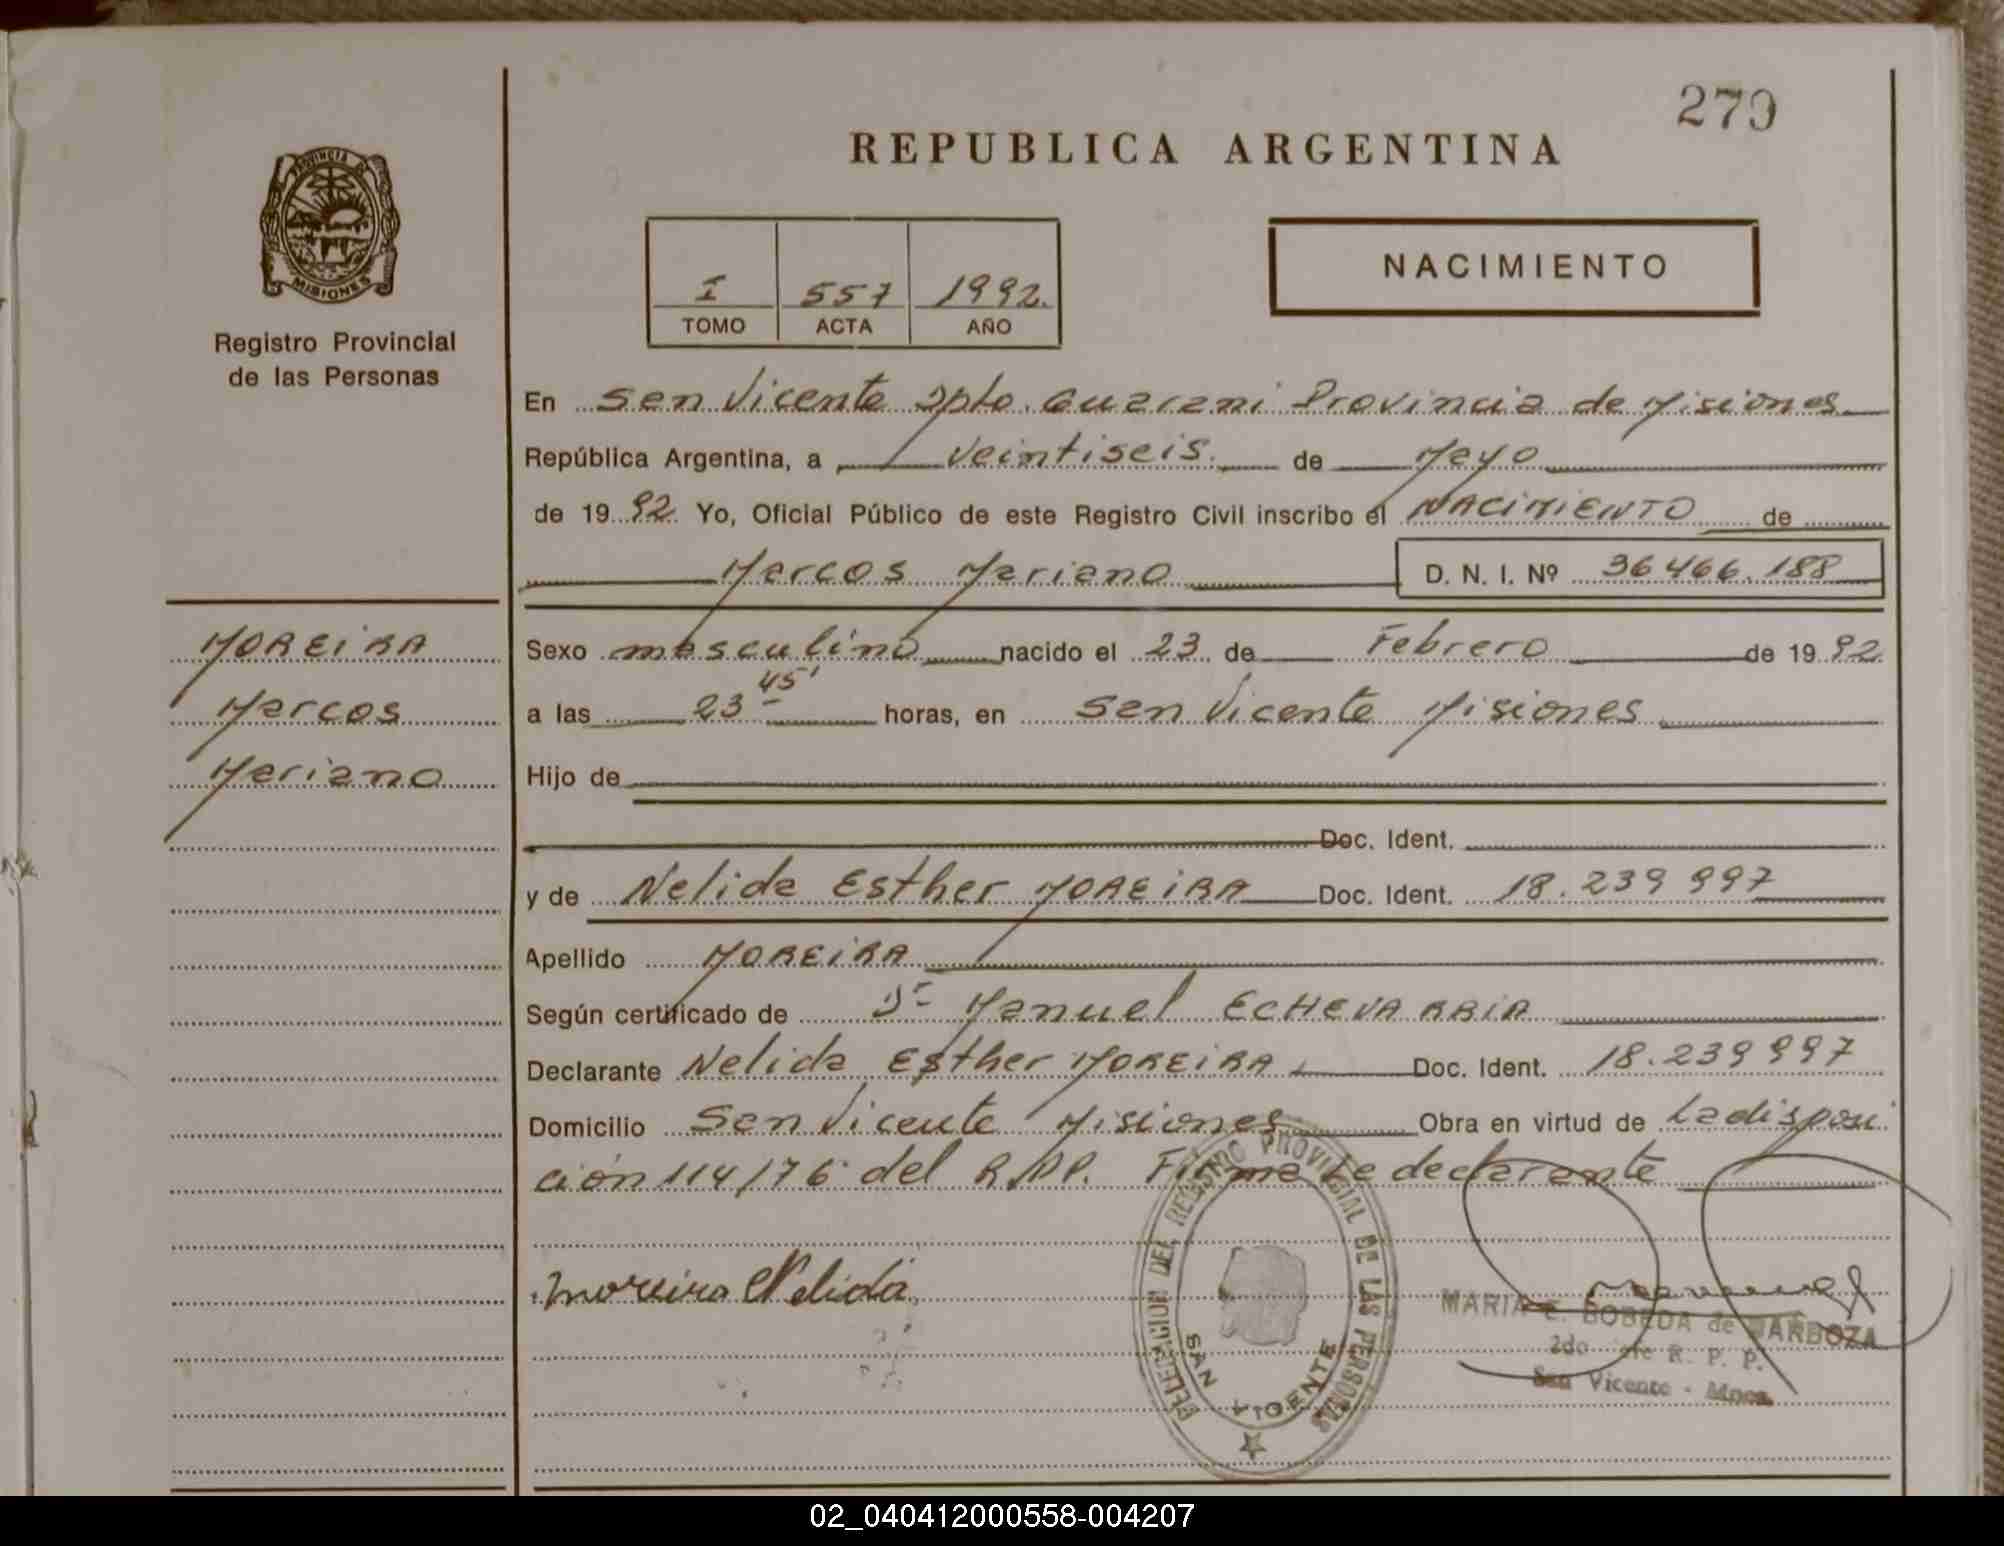 279
REPUBLICA ARGENTINA
PROVINCIA DE
MISIONES
Registro Provincial
de las Personas
NACIMIENTO
I 557 1992.
TOMO ACTA AÑO
En San Vicente Dpto. Guarani Provincia de Misiones
República Argentina, a veintiseis. de Mayo
de 1992. Yo, Oficial Público de este Registro Civil inscribo el NACIMIENTO de
Marcos Mariano D. N. I. Nº 36466.188
MOREIRA
Marcos
Mariano
Sexo masculino nacido el 23 de Febrero de 1992
a las 23 45' horas, en San Vicente Misiones
Hijo de
Doc. Ident.
y de Nelida Esther MOREIRA Doc. Ident. 18.239 997
Apellido MOREIRA
Según certificado de Dr Manuel ECHEVARRIA
Declarante Nelida Esther MOREIRA Doc. Ident. 18.239 997
Domicilio San Vicente Misiones Obra en virtud de La disposi
ción 114/76 del R.P.P. Firma la declarante
Moreira Nelida
DELEGACION DEL REGISTRO PROVINCIAL DE LAS PERSONAS
SAN VICENTE
MARIA E. BOBEDA de BARBOZA
2do R. P. P.
San Vicente - Mnes.
02_040412000558-004207